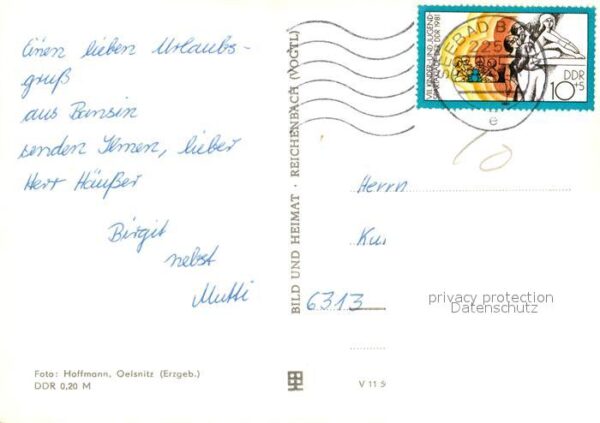 Einen lieben Urlaubs-
gruß
aus Bansin
senden Ihnen, lieber
Herr Häußer
Birgit
nebst
Mutti
Foto: Hoffmann, Oelsnitz (Erzgeb.)
DDR 0,20 M
BILD UND HEIMAT · REICHENBACH (VOGTL)
VIII. KINDER- UND JUGEND-
SPARTAKIADE DER DDR 1981
DDR
10+5
SEEBAD B
e
Herrn
Ku
6313
privacy protection
Datenschutz
V 11 5